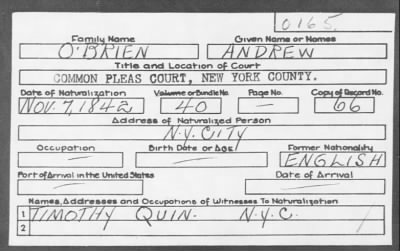 O165
Family Name Given Name or Names
O'BRIEN ANDREW
Title and Location of Court
COMMON PLEAS COURT, NEW YORK COUNTY.
Date of Naturalization Volume or Bundle No. Page No. Copy of Record No.
NOV. 7, 1842 40 — 66
Address of Naturalized Person
N.Y. CITY
Occupation Birth Date or Age Former Nationality
— — ENGLISH
Port of Arrival in the United States Date of Arrival
— —
Names, Addresses and Occupations of Witnesses To Naturalization
1 TIMOTHY QUIN. N.Y.C.
2